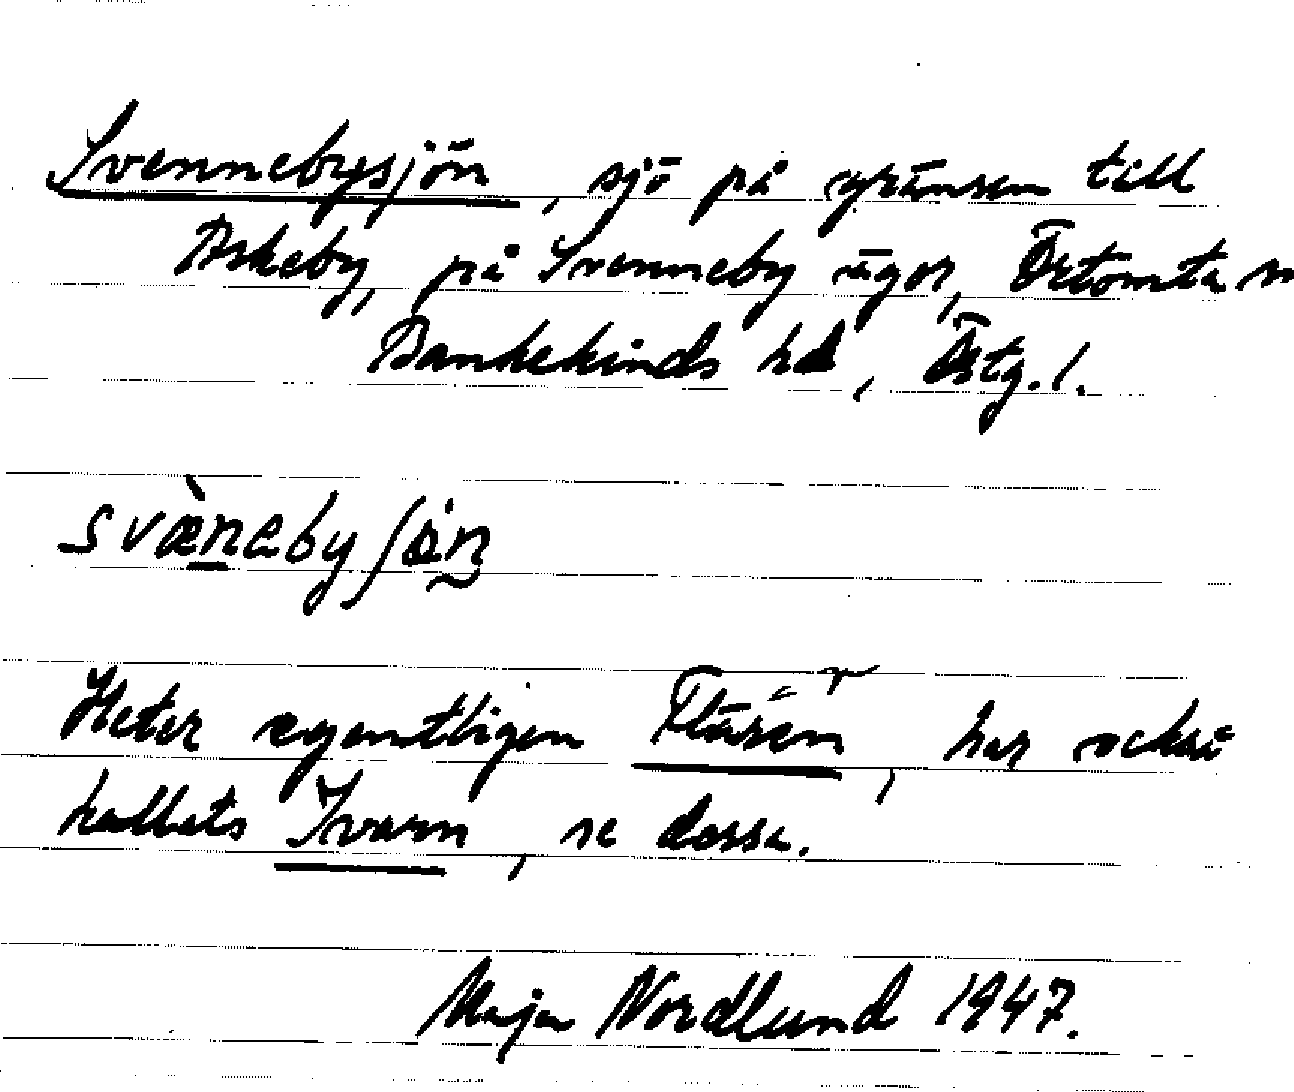 Svennebysjön, sjö på gränsen till
Askeby, på Svenneby ägor, Örtomta sn
Bankekinds hd, Östg. l.
svæ̀nebyʃön
Heter egentligen Flären, har också
kallats Svarn, se dessa.
Maja Nordlund 1947.